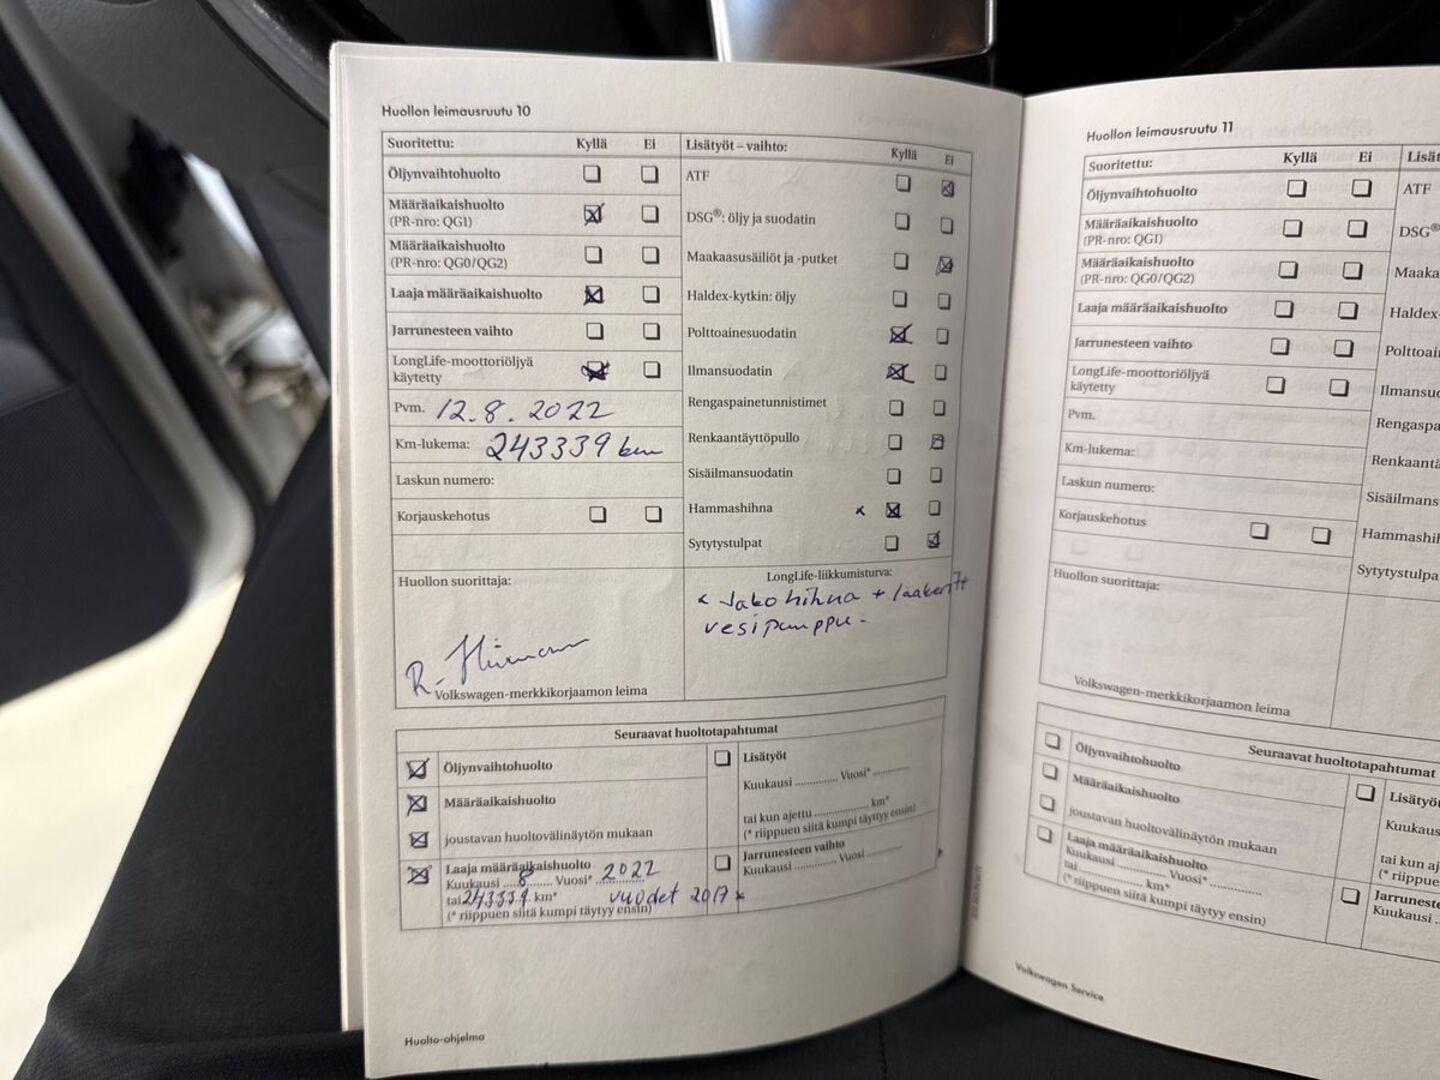 Huollon leimausruutu 10
Suoritettu: Kyllä Ei
Öljynvaihtohuolto
Määräaikaishuolto
(PR-nro: QG1)
Määräaikaishuolto
(PR-nro: QG0/QG2)
Laaja määräaikaishuolto
Jarrunesteen vaihto
LongLife-moottoriöljyä
käytetty
Pvm. 12.8.2022
Km-lukema: 243339 km
Laskun numero:
Korjauskehotus
Huollon suorittaja:
Volkswagen-merkkikorjaamon leima
Lisätyöt – vaihto: Kyllä Ei
ATF
DSG®: öljy ja suodatin
Maakaasusäiliöt ja -putket
Haldex-kytkin: öljy
Polttoainesuodatin
Ilmansuodatin
Rengaspainetunnistimet
Renkaantäyttöpullo
Sisäilmansuodatin
Hammashihna x
Sytytystulpat
LongLife-liikkumisturva:
x Jakohihna + laakerit
vesipumppu-
Seuraavat huoltotapahtumat
Öljynvaihtohuolto
Määräaikaishuolto
joustavan huoltovälinäytön mukaan
Laaja määräaikaishuolto
Kuukausi ...8... Vuosi* 2022
tai 243339 km* vuodet 2017 x
(* riippuen siitä kumpi täytyy ensin)
Lisätyöt
Kuukausi .............. Vuosi* ............
tai kun ajettu .................. km*
(* riippuen siitä kumpi täytyy ensin)
Jarrunesteen vaihto
Kuukausi .............. Vuosi ............
Huolto-ohjelma
Huollon leimausruutu 11
Suoritettu: Kyllä Ei
Öljynvaihtohuolto
Määräaikaishuolto
(PR-nro: QG1)
Määräaikaishuolto
(PR-nro: QG0/QG2)
Laaja määräaikaishuolto
Jarrunesteen vaihto
LongLife-moottoriöljyä
käytetty
Pvm.
Km-lukema:
Laskun numero:
Korjauskehotus
Huollon suorittaja:
Volkswagen-merkkikorjaamon leima
Lisät
ATF
DSG®
Maaka
Haldex-
Polttoai
Ilmansuo
Rengaspa
Renkaantä
Sisäilmans
Hammashih
Sytytystulpa
Seuraavat huoltotapahtumat
Öljynvaihtohuolto
Määräaikaishuolto
joustavan huoltovälinäytön mukaan
Laaja määräaikaishuolto
Kuukausi .............. Vuosi* ............
tai .................. km*
(* riippuen siitä kumpi täytyy ensin)
Lisätyö
Kuukau
tai kun aj
(* riippue
Jarruneste
Kuukausi ..
Volkswagen Service